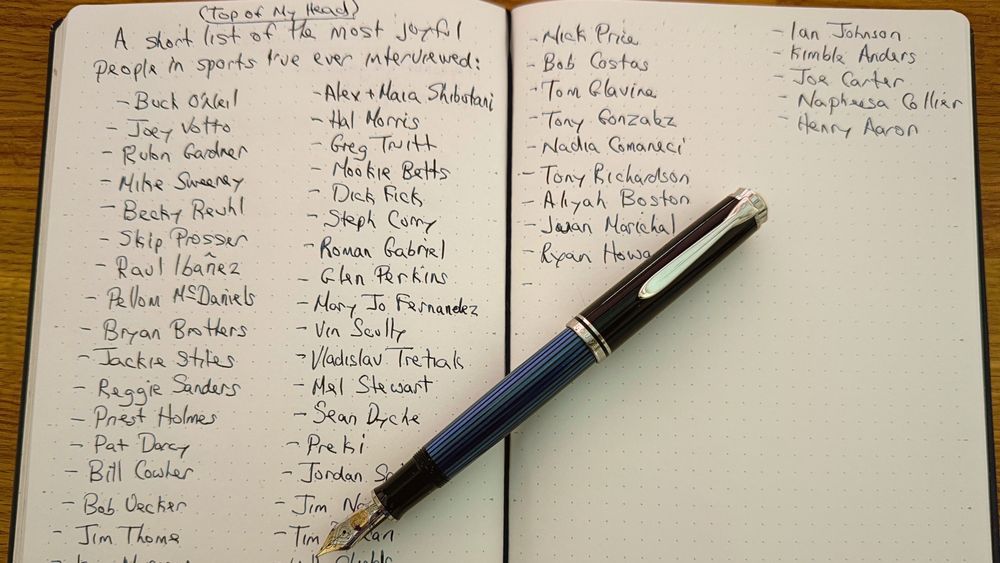 (Top of My Head)
A short list of the most joyful
people in sports I've ever interviewed:
- Buck O'Neil
- Joey Votto
- Rulon Gardner
- Mike Sweeney
- Becky Reuhl
- Skip Prosser
- Raul Ibañez
- Pellom McDaniels
- Bryan Brothers
- Jackie Stiles
- Reggie Sanders
- Priest Holmes
- Pat Darcy
- Bill Cowher
- Bob Uecker
- Jim Thome
- Alex + Maia Shibutani
- Hal Morris
- Greg Truitt
- Mookie Betts
- Dick Fick
- Steph Curry
- Roman Gabriel
- Glen Perkins
- Mary Jo Fernandez
- Vin Scully
- Vladislav Tretiak
- Mel Stewart
- Sean Dyche
- Preki
- Jordan
- Jim
- Tim
- Nick Price
- Bob Costas
- Tom Glavine
- Tony Gonzalez
- Nadia Comaneci
- Tony Richardson
- Aliyah Boston
- Juan Marichal
- Ryan Howa
-
- Ian Johnson
- Kimble Anders
- Joe Carter
- Napheesa Collier
- Henry Aaron